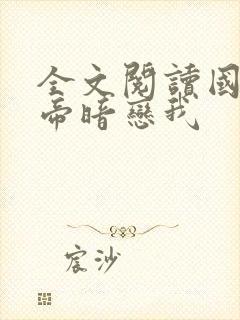 全文閱讀國
帝暗戀我
宸沙